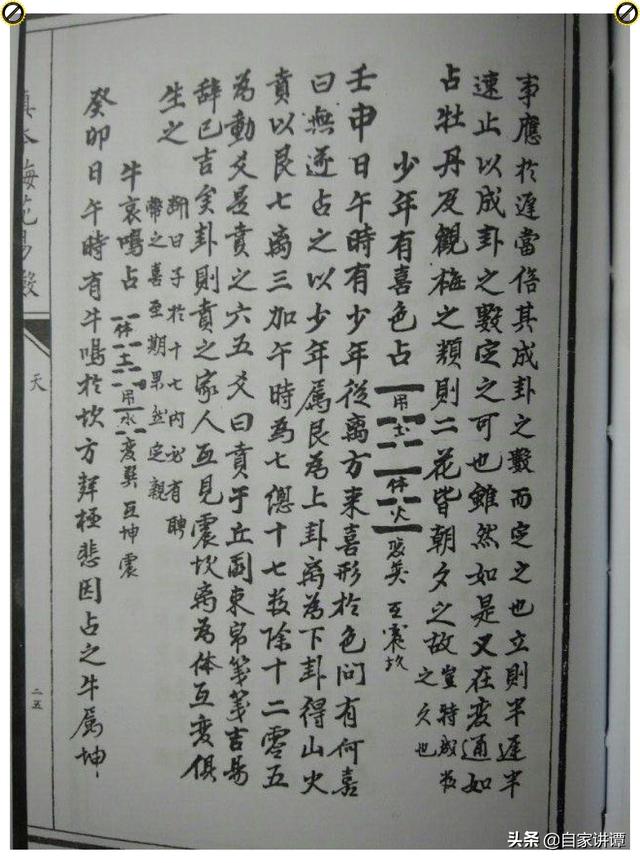 事應於遲當倍其成卦之數而定之也立則半遲半
速止以成卦之數定之可也雖然如是又在変通如
占牡丹及觀梅之類則二花皆朝夕之故豈特成数之久也
少年有喜色占 用土 体火 変巽 互震坎
壬申日午時有少年從离方来喜形於色問有何喜
曰無遂占之以少年属艮為上卦离為下卦得山火
賁以艮七离三加午時為七總十七数除十二零五
為動爻是賁之六五爻曰賁于丘園東帛箋箋吉易
辞已吉矣卦則賁之家人互見震坎离為体互変俱
生之 断曰子於十七内必有聘
幣之喜至期果然定親
牛哀鳴占 体土 用水 変巽 互坤震
癸卯日午時有牛鳴於坎方聲極悲因占之牛属坤
梅花易數
天
二五
头条 @自家讲谭